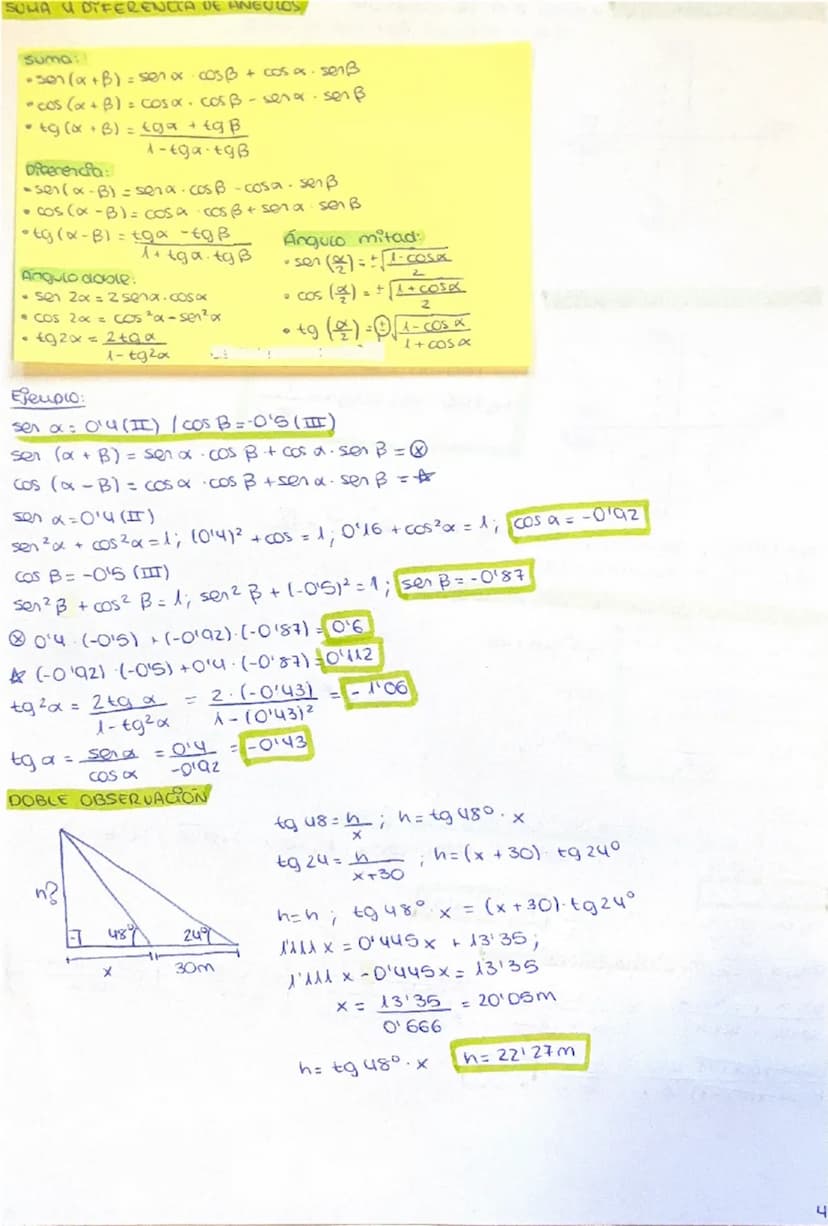 SUMA Y DIFERENCIA DE ÁNGULOS
Suma:
• sen (α + β) = sen α · cos β + cos α · sen β
• cos (α + β) = cos α · cos β - sen α · sen β
• tg (α + β) = tg α + tg β / 1 - tg α · tg β
Diferencia:
• sen (α - β) = sen α · cos β - cos α · sen β
• cos (α - β) = cos α · cos β + sen α · sen β
• tg (α - β) = tg α - tg β / 1 + tg α · tg β
Ángulo doble:
• sen 2α = 2 sen α · cos α
• cos 2α = cos²α - sen²α
• tg 2α = 2 tg α / 1 - tg²α
Ángulo mitad:
• sen (α/2) = ±√(1 - cos α / 2)
• cos (α/2) = ±√(1 + cos α / 2)
• tg (α/2) = ±√(1 - cos α / 1 + cos α)
Ejemplo:
sen α = 0'4 (II) / cos β = -0'5 (III)
sen (α + β) = sen α · cos β + cos α · sen β = ⊗
cos (α - β) = cos α · cos β + sen α · sen β = ☆
sen α = 0'4 (II)
sen²α + cos²α = 1; (0'4)² + cos = 1; 0'16 + cos²α = 1; cos α = -0'92
cos β = -0'5 (III)
sen²β + cos²β = 1; sen²β + (-0'5)² = 1; sen β = -0'87
⊗ 0'4 · (-0'5) + (-0'92) · (-0'87) = 0'6
☆ (-0'92) · (-0'5) + 0'4 · (-0'87) = 0'112
tg²α = 2 tg α / 1 - tg²α = 2 · (-0'43) / 1 - (0'43)² = -1'06
tg α = sen α / cos α = 0'4 / -0'92 = -0'43
DOBLE OBSERVACIÓN
h?
48º
24º
x
30m
tg 48 = h / x ; h = tg 48º · x
tg 24 = h / x + 30 ; h = (x + 30) · tg 24º
h = h ; tg 48º · x = (x + 30) · tg 24º
1'111 x = 0'445 x + 13'35;
1'111 x - 0'445 x = 13'35
x = 13'35 / 0'666 = 20'05 m
h = tg 48º · x h = 22'27 m
4